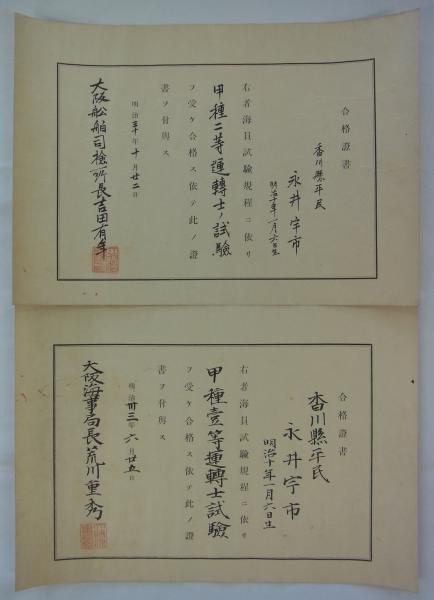 合格證書
香川縣平民
永井宇市
明治十年一月六日生
右者海員試驗規程ニ依リ
甲種二等運轉士ノ試驗
ヲ受ケ合格ス依テ此ノ證
書ヲ付與ス
明治三十年十月廿二日
大阪船舶司檢所長吉田有年
合格證書
香川縣平民
永井宇市
明治十年一月六日生
右者海員試驗規程ニ依リ
甲種壹等運轉士試驗
ヲ受ケ合格ス依テ此ノ證
書ヲ付與ス
明治卅三年六月廿五日
大阪海事局長荒川重秀